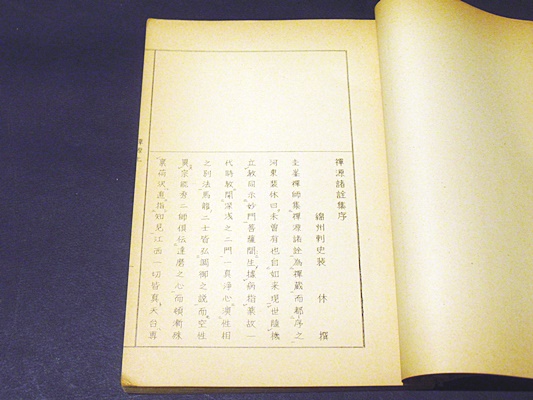 禪源諸詮集序
綿州刺史裴 休 撰
圭峯禪師集禪源諸詮為禪藏而都序之
河東裴休曰未曾有也自如來現世隨機
立教開示妙門菩薩間生據病指藥故一
代時教開深淺之三門一真淨心演性相
之別法馬龍二士皆弘調御之說而空性
異宗能秀二師俱傳達磨之心而頓漸殊
稟荷澤直指知見江西一切皆真天台專